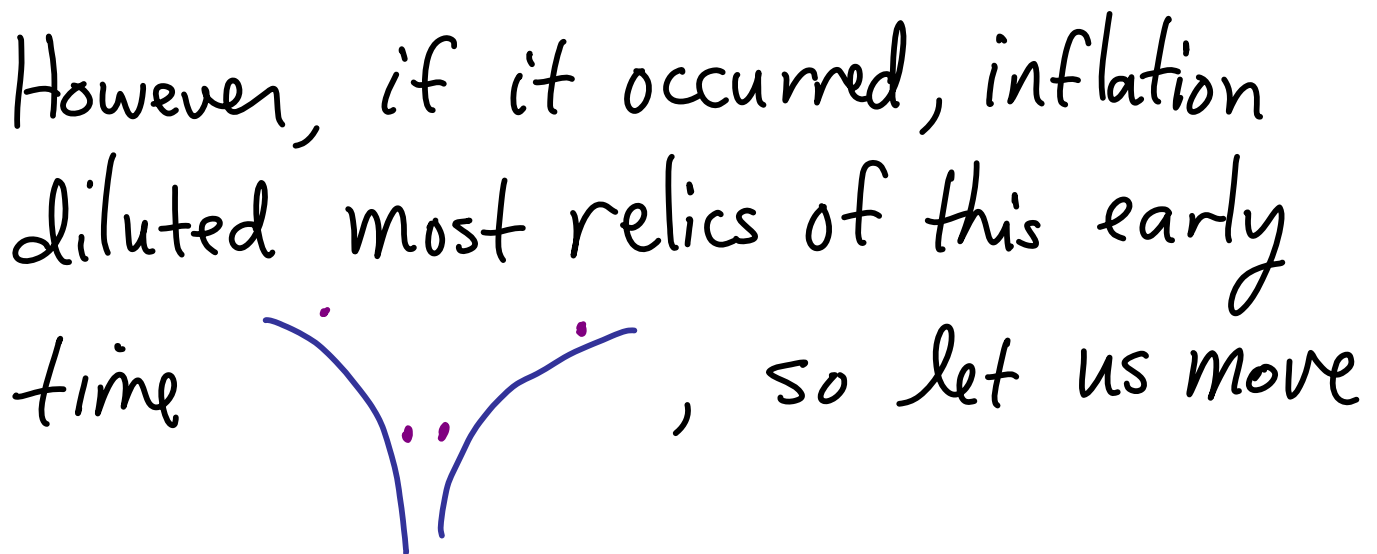 However, if it occurred, inflation
diluted most relics of this early
time , so let us move